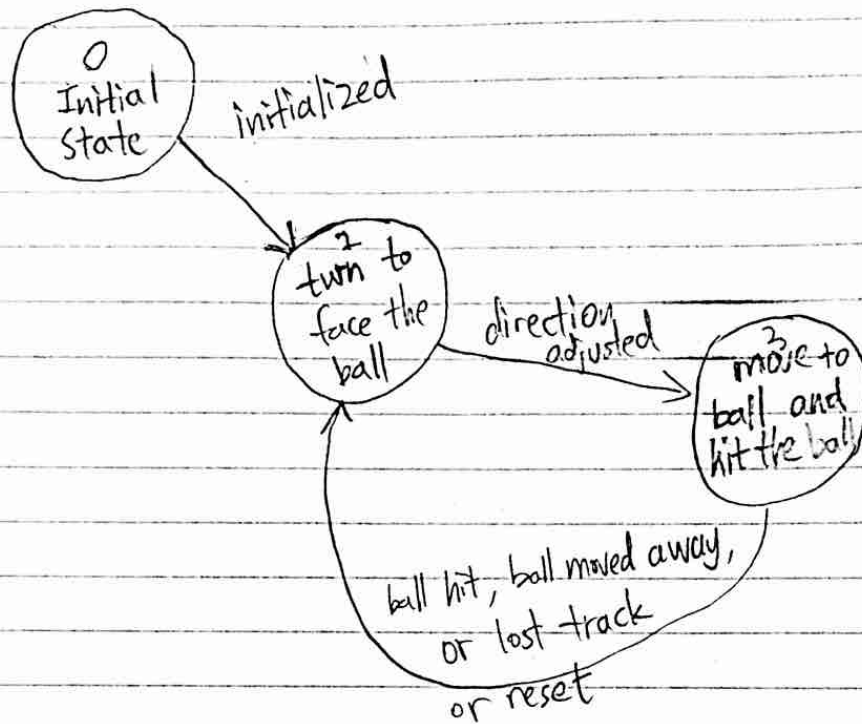 0
Initial
state
initialized
2
turn to
face the
ball
direction
adjusted
3
move to
ball and
hit the ball
ball hit, ball moved away,
or lost track
or reset